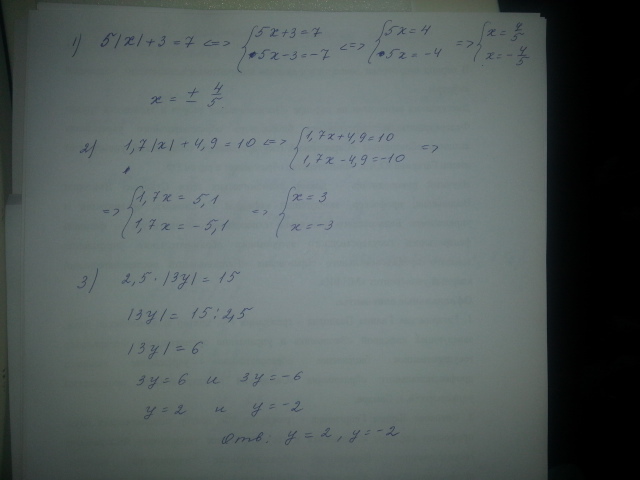 1) 5|x|+3=7 <=> { 5x+3=7 <=> { 5x=4 => { x=4/5
5x-3=-7 5x=-4 x=-4/5
x = ± 4/5
2) 1,7|x|+4,9=10 <=> { 1,7x+4,9=10 =>
1,7x-4,9=-10
=> { 1,7x = 5,1 => { x=3
1,7x = -5,1 x=-3
3) 2,5·|3y|=15
|3y|= 15:2,5
|3y|=6
3y=6 и 3y=-6
y=2 и y=-2
Отв: y=2, y=-2